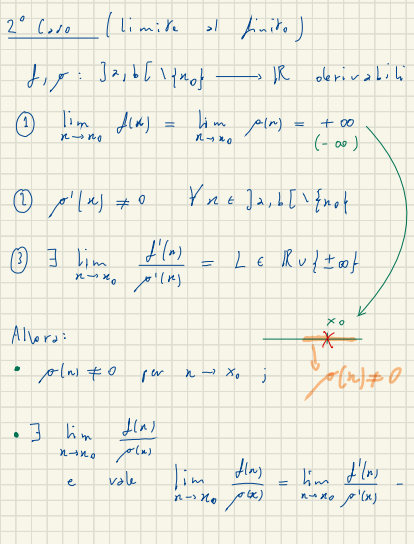 2° Caso (limite al finito)
f, g : ]a, b[ \ {x₀} ⟶ ℝ derivabili
① lim x→x₀ f(x) = lim x→x₀ g(x) = +∞
(-∞)
② g'(x) ≠ 0 ∀ x ∈ ]a, b[ \ {x₀}
③ ∃ lim x→x₀ f'(x)/g'(x) = L ∈ ℝ ∪ {±∞}
x₀
Allora:
g(x) ≠ 0
• g(x) ≠ 0 per x → x₀ ;
• ∃ lim x→x₀ f(x)/g(x)
e vale lim x→x₀ f(x)/g(x) = lim x→x₀ f'(x)/g'(x) -